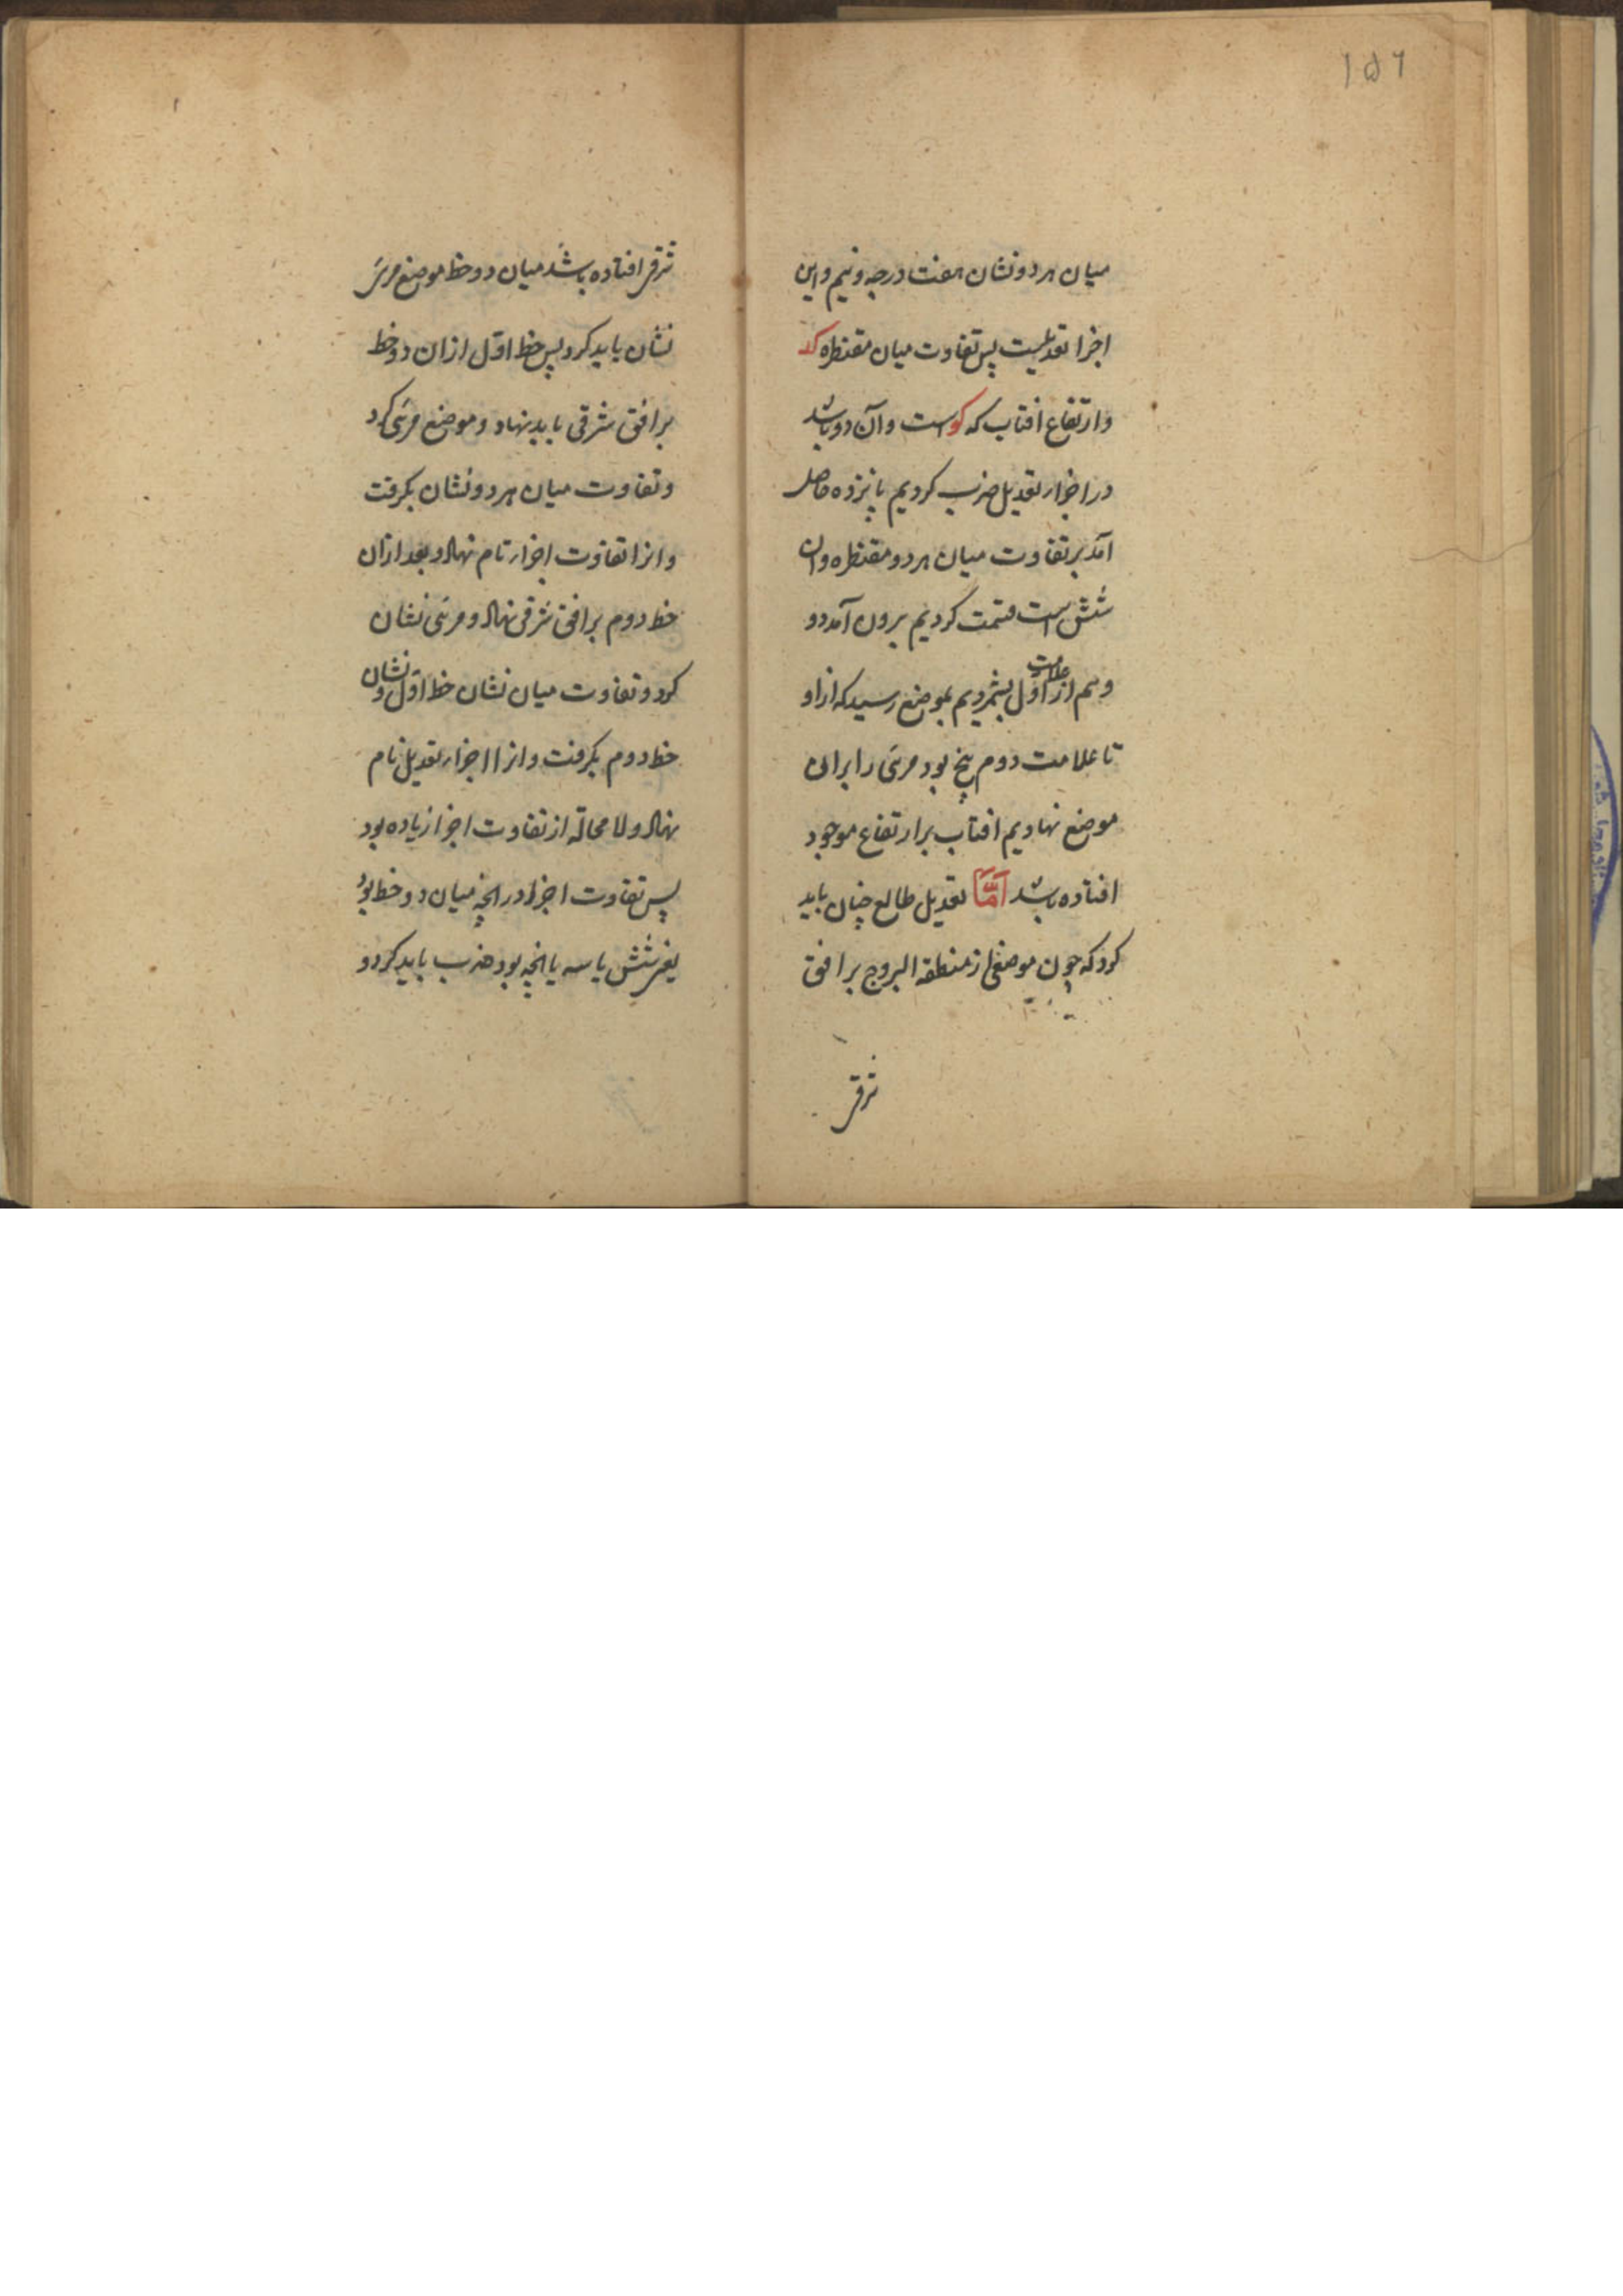 ۱۵۶
میان هر دو نشان هفت درجه و نیم و این
اجزا تعدیلست پس تفاوت میان مقنطره کد
و ارتفاع افتاب که کو است و آن دو باشد
در اجزاء تعدیل ضرب کردیم پانزده حاصل
آمد بر تفاوت میان هر دو مقنطره و ان
شش است قسمت کردیم برون آمد دو
و نیم از علامت اول بشمردیم بموضع رسید که ازاو
تا علامت دوم پنج بود مری را بران
موضع نهادیم افتاب بر ارتفاع موجود
افتاده باشد امّا تعدیل طالع چنان باید
کرد که چون موضعی از منطقة البروج بر افق
شرقی
شرقی افتاده باشد میان دو خط موضع مری
نشان باید کرد پس خط اوّل ازان دو خط
بر افق شرقی باید نهاد و موضع مری کرد
و تفاوت میان هر دو نشان بگرفت
و انرا تفاوت اجزاء نام نهاد و بعد ازان
خط دوم بر افق شرقی نهاد و مری نشان
کرد و تفاوت میان نشان خط اوّل و نشان
خط دوم بگرفت و انرا اجزاء تعدیل نام
نهاد و لا محالة از تفاوت اجزا زیاده بود
پس تفاوت اجزا در انچه میان دو خط بود
یعنی شش یا سه یا انچه بود ضرب باید کرد و